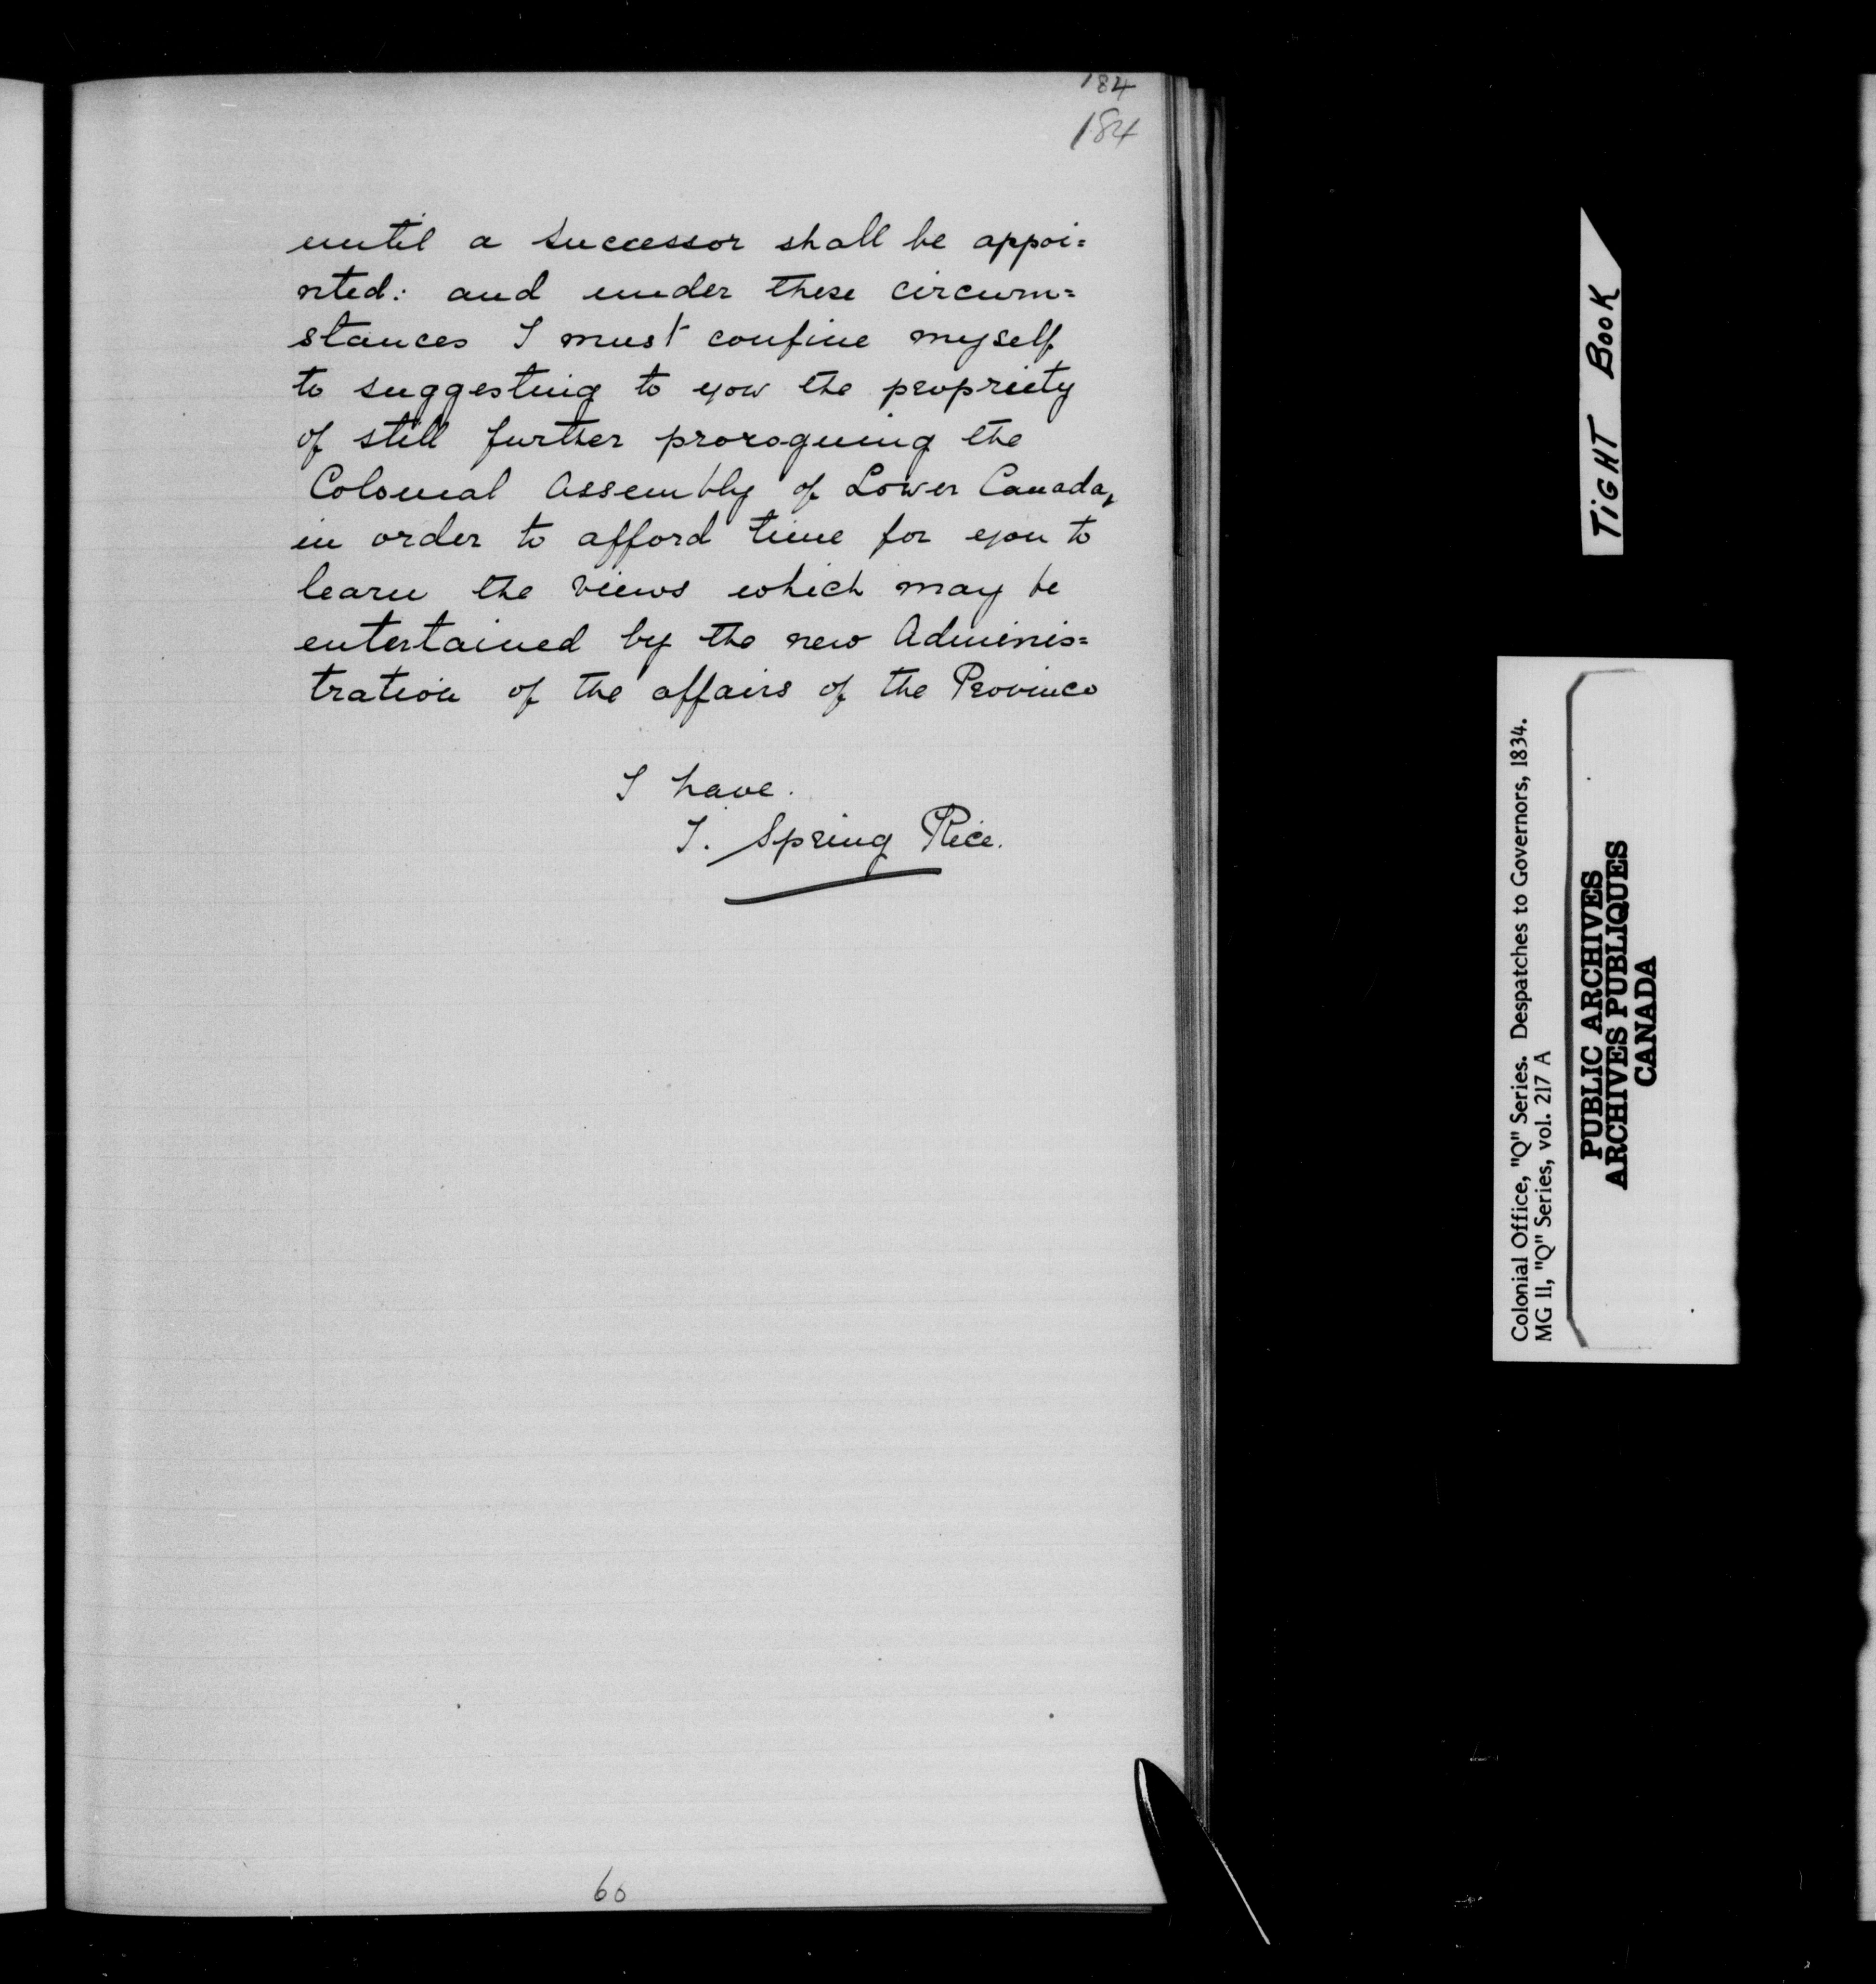 184
184
until a successor shall be appoi=
nted: and under these circum=
stances I must confine myself
to suggesting to you the propriety
of still further proroguing the
Colonial Assembly of Lower Canada,
in order to afford time for you to
learn the views which may be
entertained by the new Adminis=
tration of the affairs of the Province
I have.
T. Spring Rice.
60
TIGHT BOOK
Colonial Office, "Q" Series. Despatches to Governors, 1834.
MG 11, "Q" Series, vol. 217 A
PUBLIC ARCHIVES
ARCHIVES PUBLIQUES
CANADA